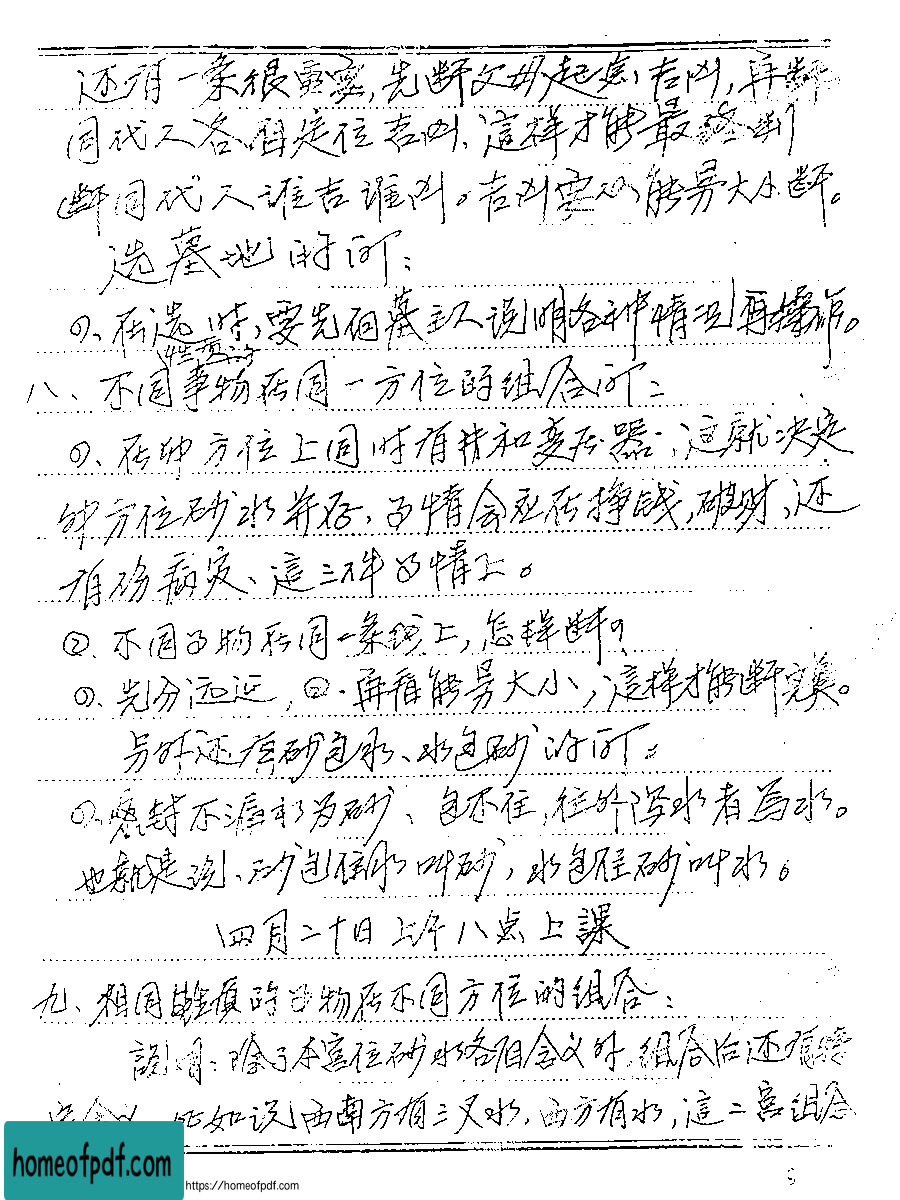 还有一条很重要,先断父母起忌,吉凶,再断
同代人各自定位吉凶,這样才能最终判
断同代人谁吉谁凶。吉凶要以能量大小断。
选墓地的询:
①、在选时,要先向墓主人说明各种情况再操作。
性质的
八、不同事物在同一方位的组合询:
①、在坤方位上同时有井和变压器,这就决定
坤方位砂水并存,事情会应在挣钱,破财,还
有伤病灾、這三件事情上。
②、不同事物在同一条线上,怎样断?
①、先分远近,②.再看能量大小,這样才能断完美。
另外还有砂包水、水包砂的询。
①、密封不漏水为砂、包不住,往外泻水者為水。
也就是说、砂包住水叫砂,水包住砂叫水。
四月二十日上午八点上課
九、相同性质的事物在不同方位的组合:
說明:除了本宫位砂水各自含义外,组合后还有特
含义 比如说西南方有三叉水,西方有水,這二宫组合
homeofpdf.com
https://homeofpdf.com